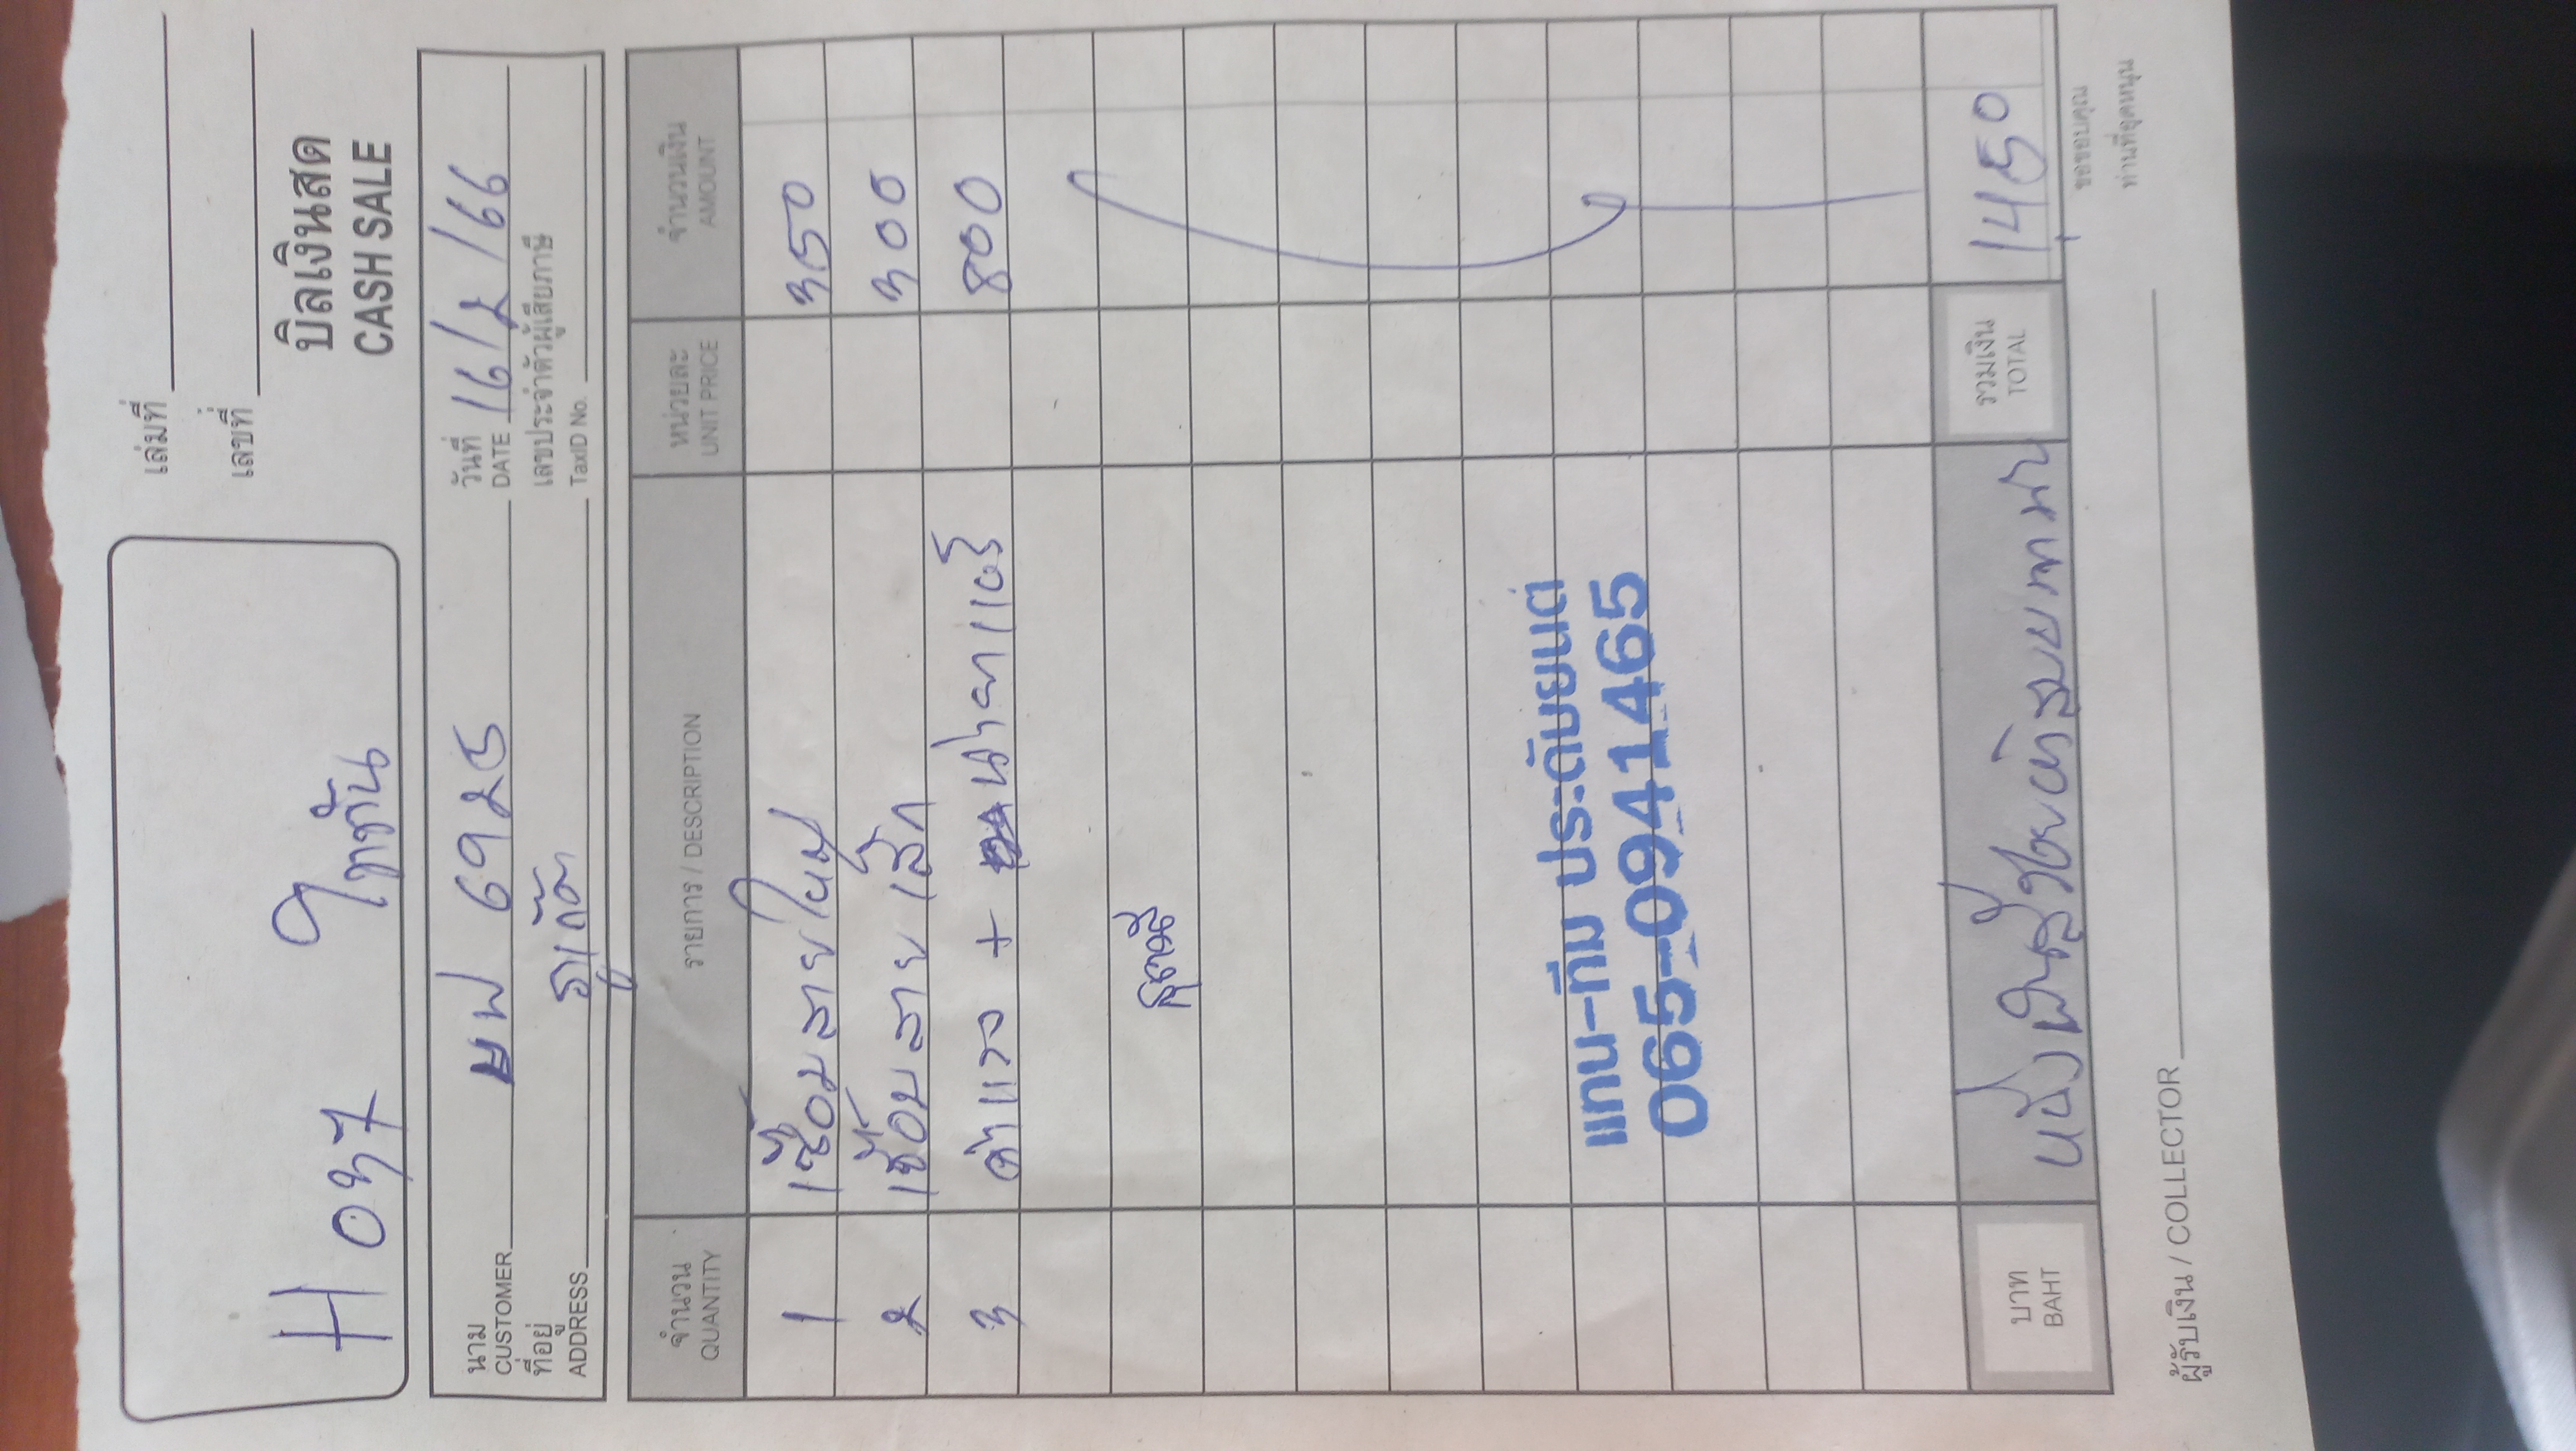 เล่มที่
เลขที่
H037 ไทชัน
บิลเงินสด
CASH SALE
นาม
CUSTOMER ยฟ 6925
วันที่
DATE 16/2/66
ที่อยู่
ADDRESS ภูเก็ต
เลขประจำตัวผู้เสียภาษี
TaxID No.
จำนวน รายการ / DESCRIPTION หน่วยละ จำนวนเงิน
QUANTITY UNIT PRICE AMOUNT
1 เชื่อมสายใหญ่ 350
2 เชื่อมสายเล็ก 300
3 ค่าแรง + 800
แทน-ทีม ประดับยนต์
065-0941465
บาท
BAHT หนึ่งพันสี่ร้อยห้าสิบบาทถ้วน
รวมเงิน
TOTAL 1450
ผู้รับเงิน / COLLECTOR
ขอขอบคุณ
ท่านที่อุดหนุน